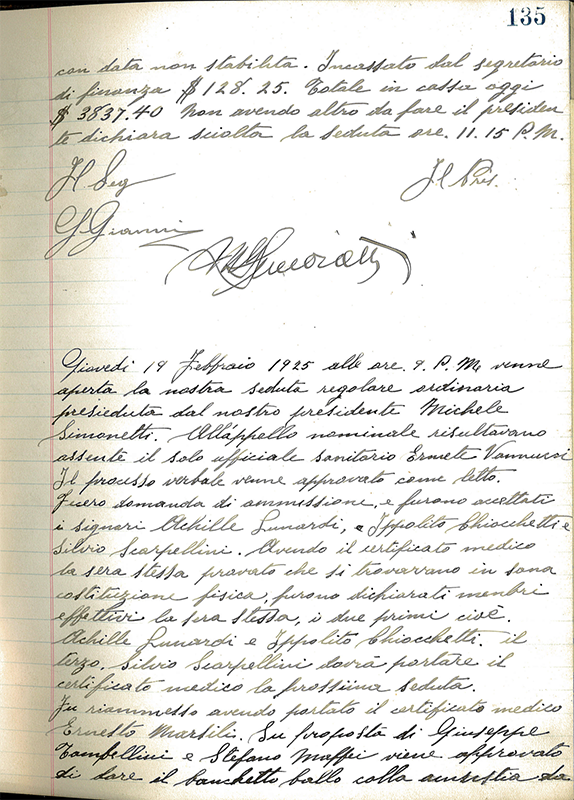 135
con data non stabilita. Incassato dal segretario
di finanza $ 128.25. Totale in cassa oggi
$ 3837.40 Non avendo altro da fare il presiden
te dichiara sciolta la seduta ore. 11.15 P.M.
Il Seg Il Pres.
G Gianni
Giovedi 19 Febbraio 1925 alle ore. 9. P.M, venne
aperta la nostra seduta regolare ordinaria
presieduta dal nostro presidente Michele
Simonetti. All'appello nominale risultavano
assente il solo ufficiale sanitario Ermete Vannucci
Il processo verbale venne approvato come letto.
Fuero domanda di ammissione, e furono accettati
i signari Achille Lunardi, e Ippolito Chiocchetti e
Silvio Scarpellini. Avendo il certificato medico
la sera stessa provato che si trovarrano in sana
costituzione fisica, furono dichiarati menbri
effettivi la sera stessa, i due primi cioè.
Achille Lunardi e Ippolito Chiocchetti. il
terzo. Silvio Scarpellini dovrà portare il
certificato medico la prossima seduta.
Fu riammesso avendo portato il certificato medico
Ernesto Marsili. Su proposta di Giuseppe
Tambellini e Stefano Maffei viene approvato
di dare il banchetto ballo colla amnestia da